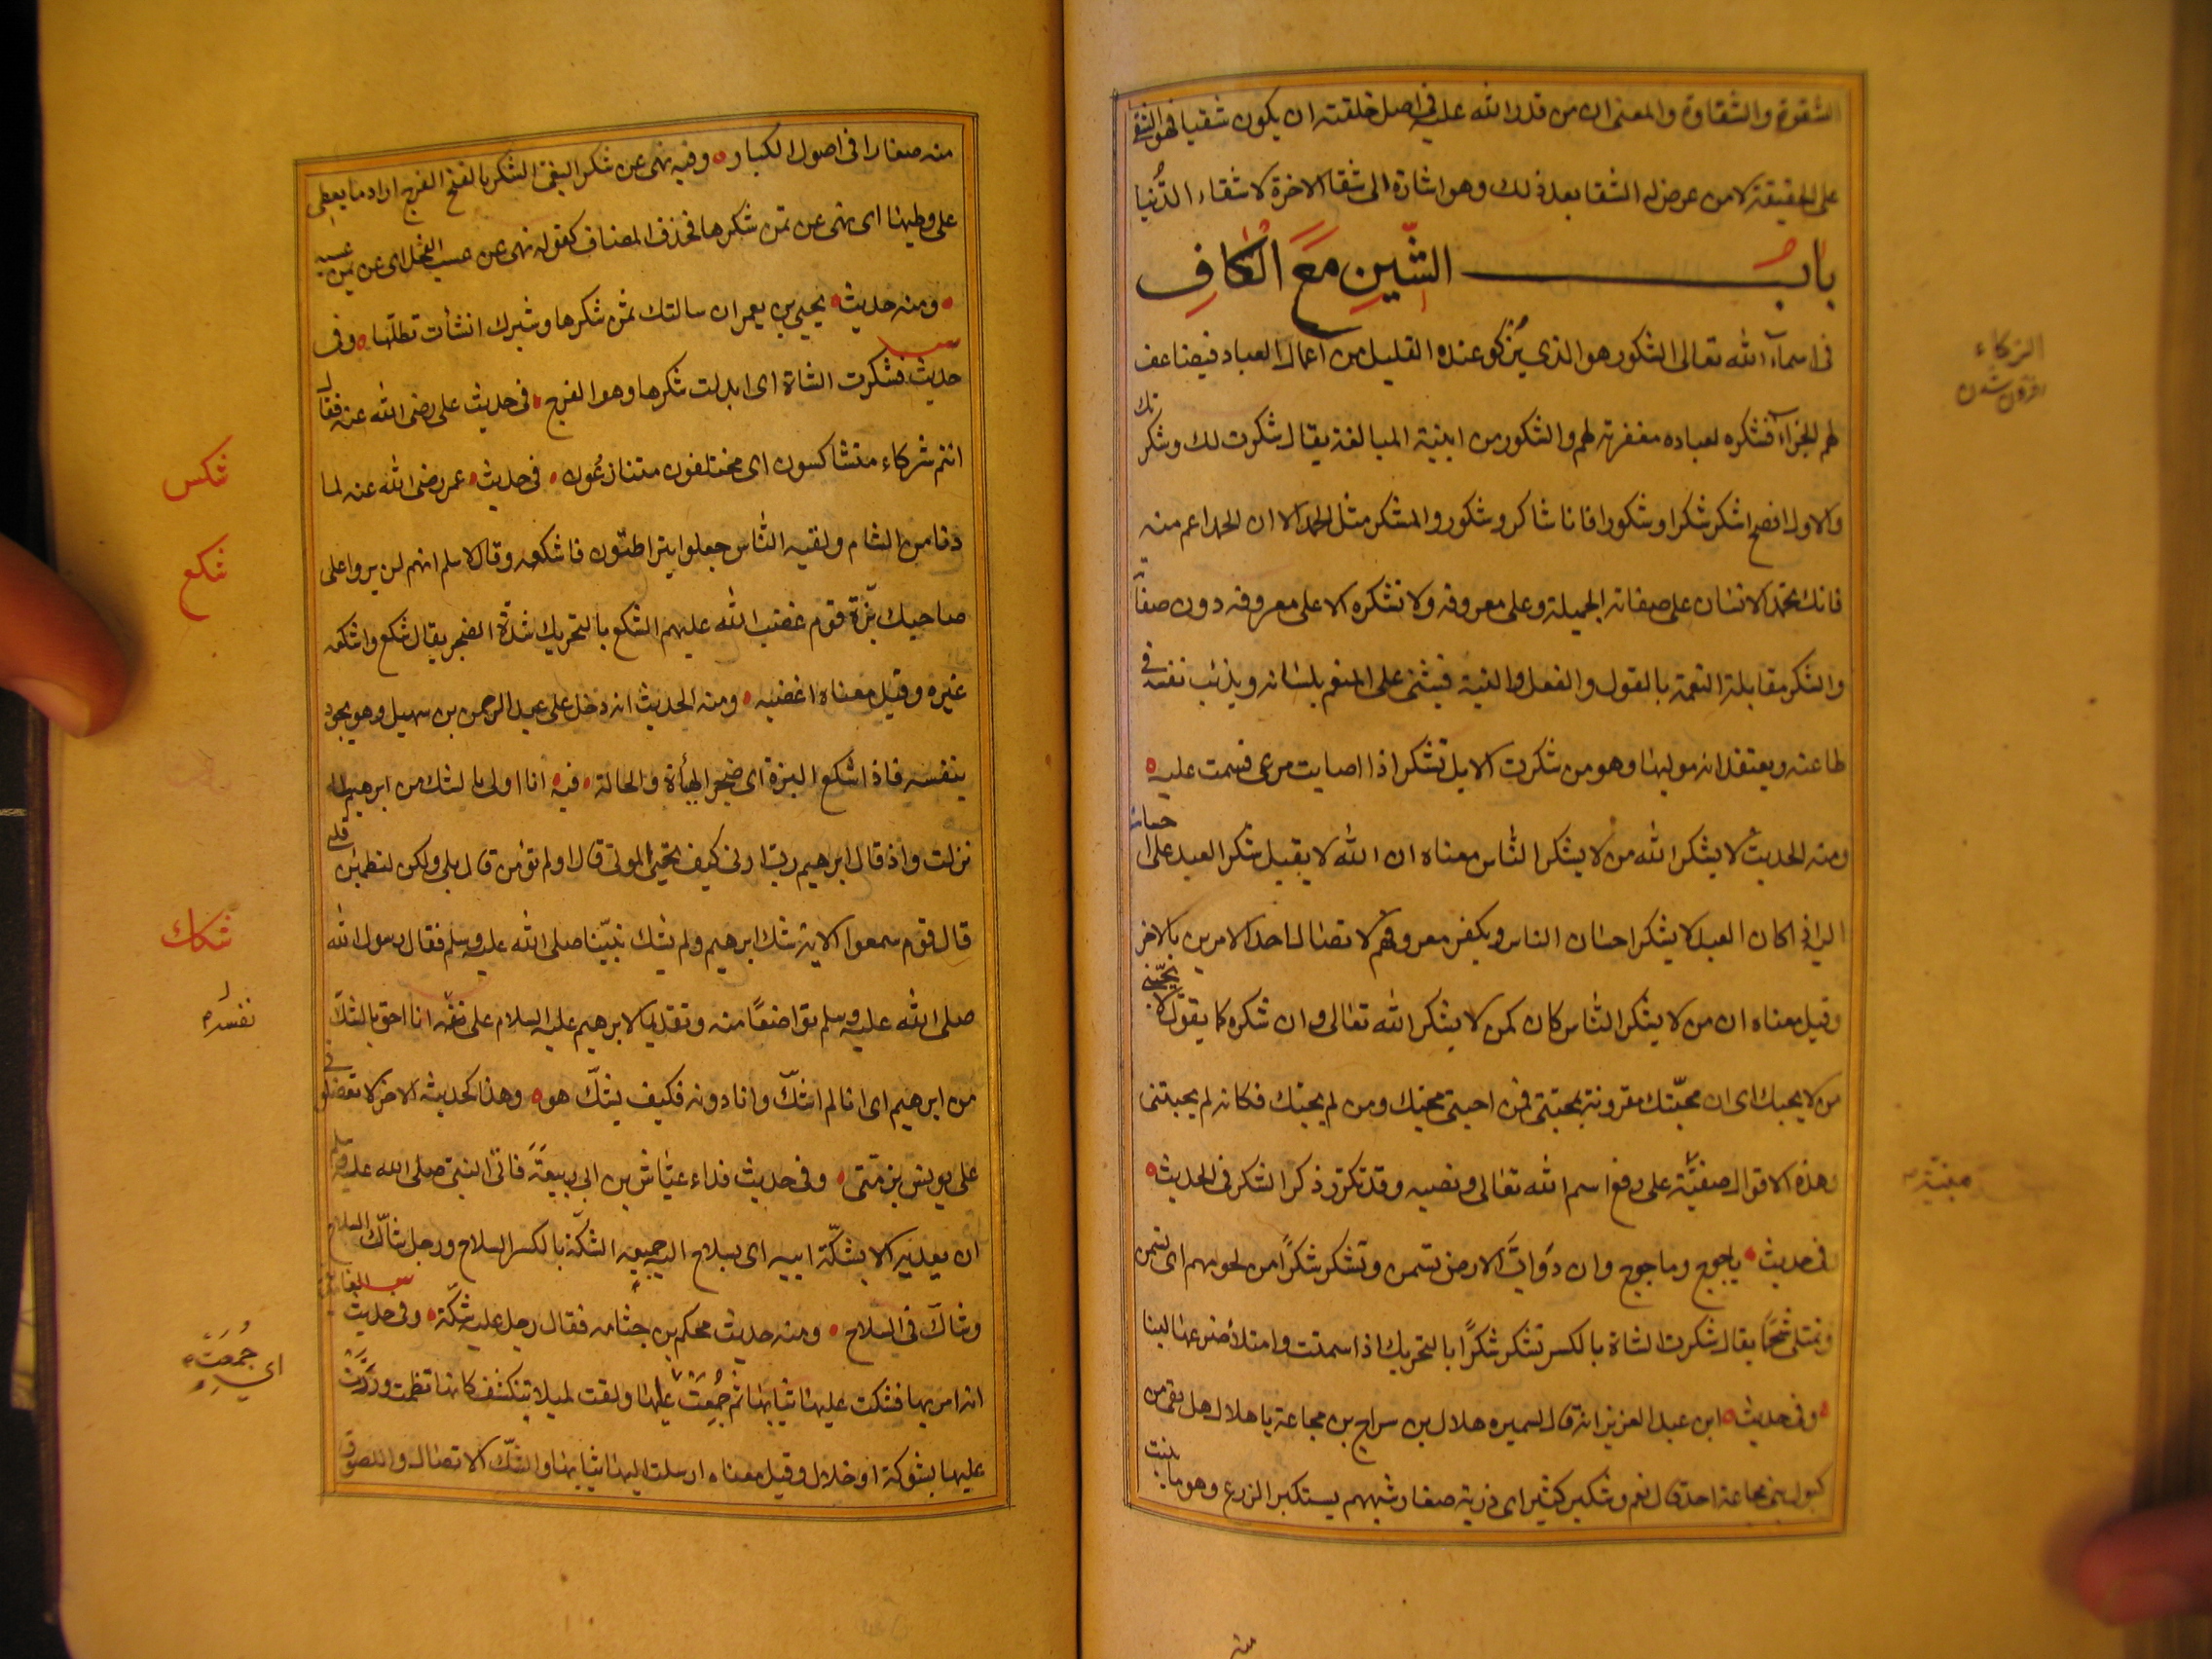 الشقوة والشقاوة والمعنى ان من قدر الله عليه فى اصل خلقته ان يكون شقيا فهو الشقى
على الحقيقة لا من عرض له الشقا بعد ذلك وهو اشارة الى شقا الاخرة لا شقاء الدُّنيا
بابُ الشّينِ مَعَ الكافِ
فى اسمآء الله تعالى الشكور هو الذى يَزكو عنده القليل من اعمال العباد فيضاعف
لهم الجزآء فشكره لعباده مغفرته لهم والشكور من ابنية المبالغة يقال شكرت لك وشكرتك
والاول افصح اشكر شكرا وشكورا فانا شاكر وشكور والشكر مثل الحمد الا ان الحمد اعم منه
فانك تحمد الانسان على صفاته الجميلة وعلى معروفه ولا تشكره الا على معروفه دون صفاته
والشكر مقابلة النعمة بالقول والفعل والنية فيثنى على المنعم بلسانه ويذئب نفسه فى
طاعته ويعتقد انه موليها وهو من شكرت الابل تشكر اذا اصابت مرعى فسمت عليه
ومنه الحديث لا يشكر الله من لا يشكر الناس معناه ان الله لا يقبل شكر العبد على احسانه
اليه اذا كان العبد لا يشكر احسان الناس ويكفر معروفهم لاتصال احد الامرين بالاخر
وقيل معناه ان من لا يشكر الناس كان كمن لا يشكر الله تعالى وان شكره كما يقول لا يحبّنى
من لا يحبك اى ان محبّتك مقرونة بمحبتى فمن احبنى يحبك ومن لم يحبك فكانه لم يحببنى
وهذه الاقوال مبنيّة على رفع اسم الله تعالى ونصبه وقد تكرّر ذكر الشكر فى الحديث
فى حديث ياجوج وماجوج وان دَوَابَّ الارض تسمن وتشكر شكرًا من لحومهم اى تسمن
وتمتلى شحمًا يقال شكرت الشاة بالكسر تشكر شكرًا بالتحريك اذا سمنت وامتلأ ضرعها لبنا
وفى حديث ابن عبد العزيز انه قال لسميره هلال بن سراج بن مجاعة يا هلال هل بقى من
كهول بنى مجاعة احد قال نعم وشكير كثير اى ذرية صغار شبههم بشكير الزرع وهو ما ينبت
الزكاء
افزون شدن
مبنيّة
منه
منه صغارا فى اصول الكبار وفيه نهى عن شكر البغى الشكر بالفتح الفرج اراد ما يعطى
على وطيها اى نهى عن ثمن شكرها فحذف المضاف كقوله نهى عن عسب الفحل اى عن ثمن عسبه
ومنه حديث يحيى بن يعمر ان سالتك ثمن شكرها وشبرك انشأت تطلّها وفى
حديث فشكرت الشاة اى ابدلت شكرها وهو الفرج فى حديث على رضى الله عنه فقال
انتم شركاء متشاكسون اى مختلفون متنازعُون فى حديث عمر رضى الله عنه لما
دنا من الشام ولقيه الناس جعلوا يتراطنون فاشكعه وقال لاسلم انهم لن يروا على
صاحبك بزّة قوم غضب الله عليهم الشكع بالتحريك شدة الضجر يقال شكع واشكعه
غيره وقيل معناه اغضبه ومنه الحديث انه دخل على عبد الرحمن بن سهيل وهو يجود
بنفسه فاذا شكع البزة اى ضجر الهيأة والحالة فيه انا اولى بالشك من ابرهيم لما
نزلت واذ قال ابرهيم رب ارنى كيف تحيى الموتى قال اولم تؤمن قال بلى ولكن ليطمئن قلبى
قال قوم سمعوا الاية شك ابرهيم ولم يشك نبيّنا صلى الله عليه وسلم فقال رسول الله
صلى الله عليه وسلم تواضعًا منه وتقديما لابرهيم عليه السلام على نفسه انا احق بالشك
من ابرهيم اى انا لم اشكّ وانا دونه فكيف يشكّ هو وهذا كحديثه الاخر لا تفضلونى
على يونس بن متى وفى حديث فداء عيّاش بن ابى ربيعَةَ فابى النبى صلى الله عليه وسلم
ان يفديه الا بشكّة ابيه اى بسلاح ابيه جميعه الشكّة بالكسر السلاح ورجل شاكّ السلاح
وشاكّ فى السلاح ومنه حديث محكم بن جثامه فقال رجل عليه شكّة وفى حديث الغامديّة
انه امر بها فشكت عليها ثيابها ثم جُمِعَتْ عليها ولفت لئلا تنكشف كانها نظمت وزُرَّتْ
عليها بشوكة او خلال وقيل معناه ارسلت اليها ثيابها والشكّ الاتصال واللصوق
شكس
شكع
شكك
نفسه
اى جُمِعَتْ